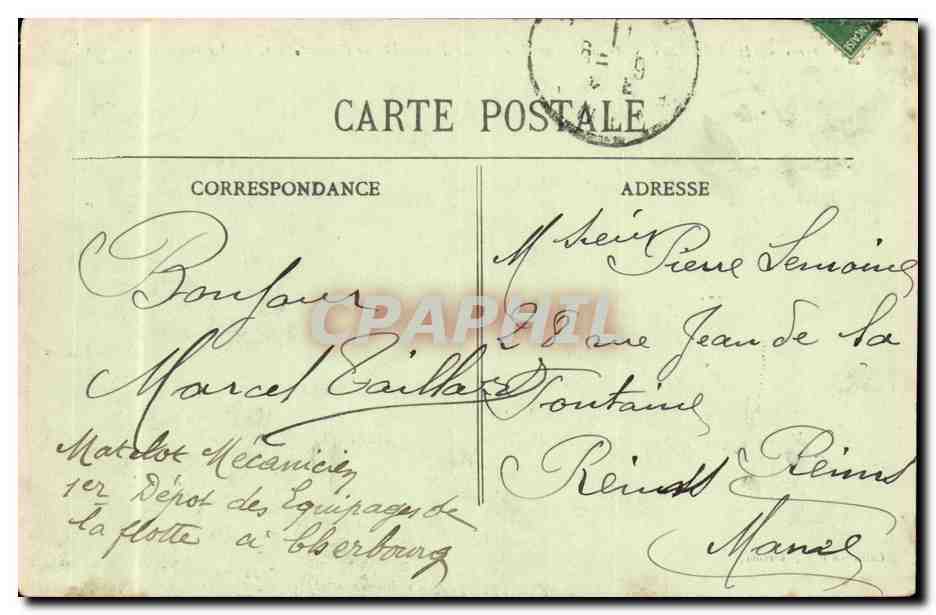 CARTE POSTALE
CORRESPONDANCE
Bonjour
Marcel Taillard
Matelot Mécanicien
1er Dépot des Equipages de
la flotte à Cherbourg
ADRESSE
Msieur Pierre Lemoine
28 rue Jean de la
Fontaine
Reims Reims
Marne
CPAPHIL